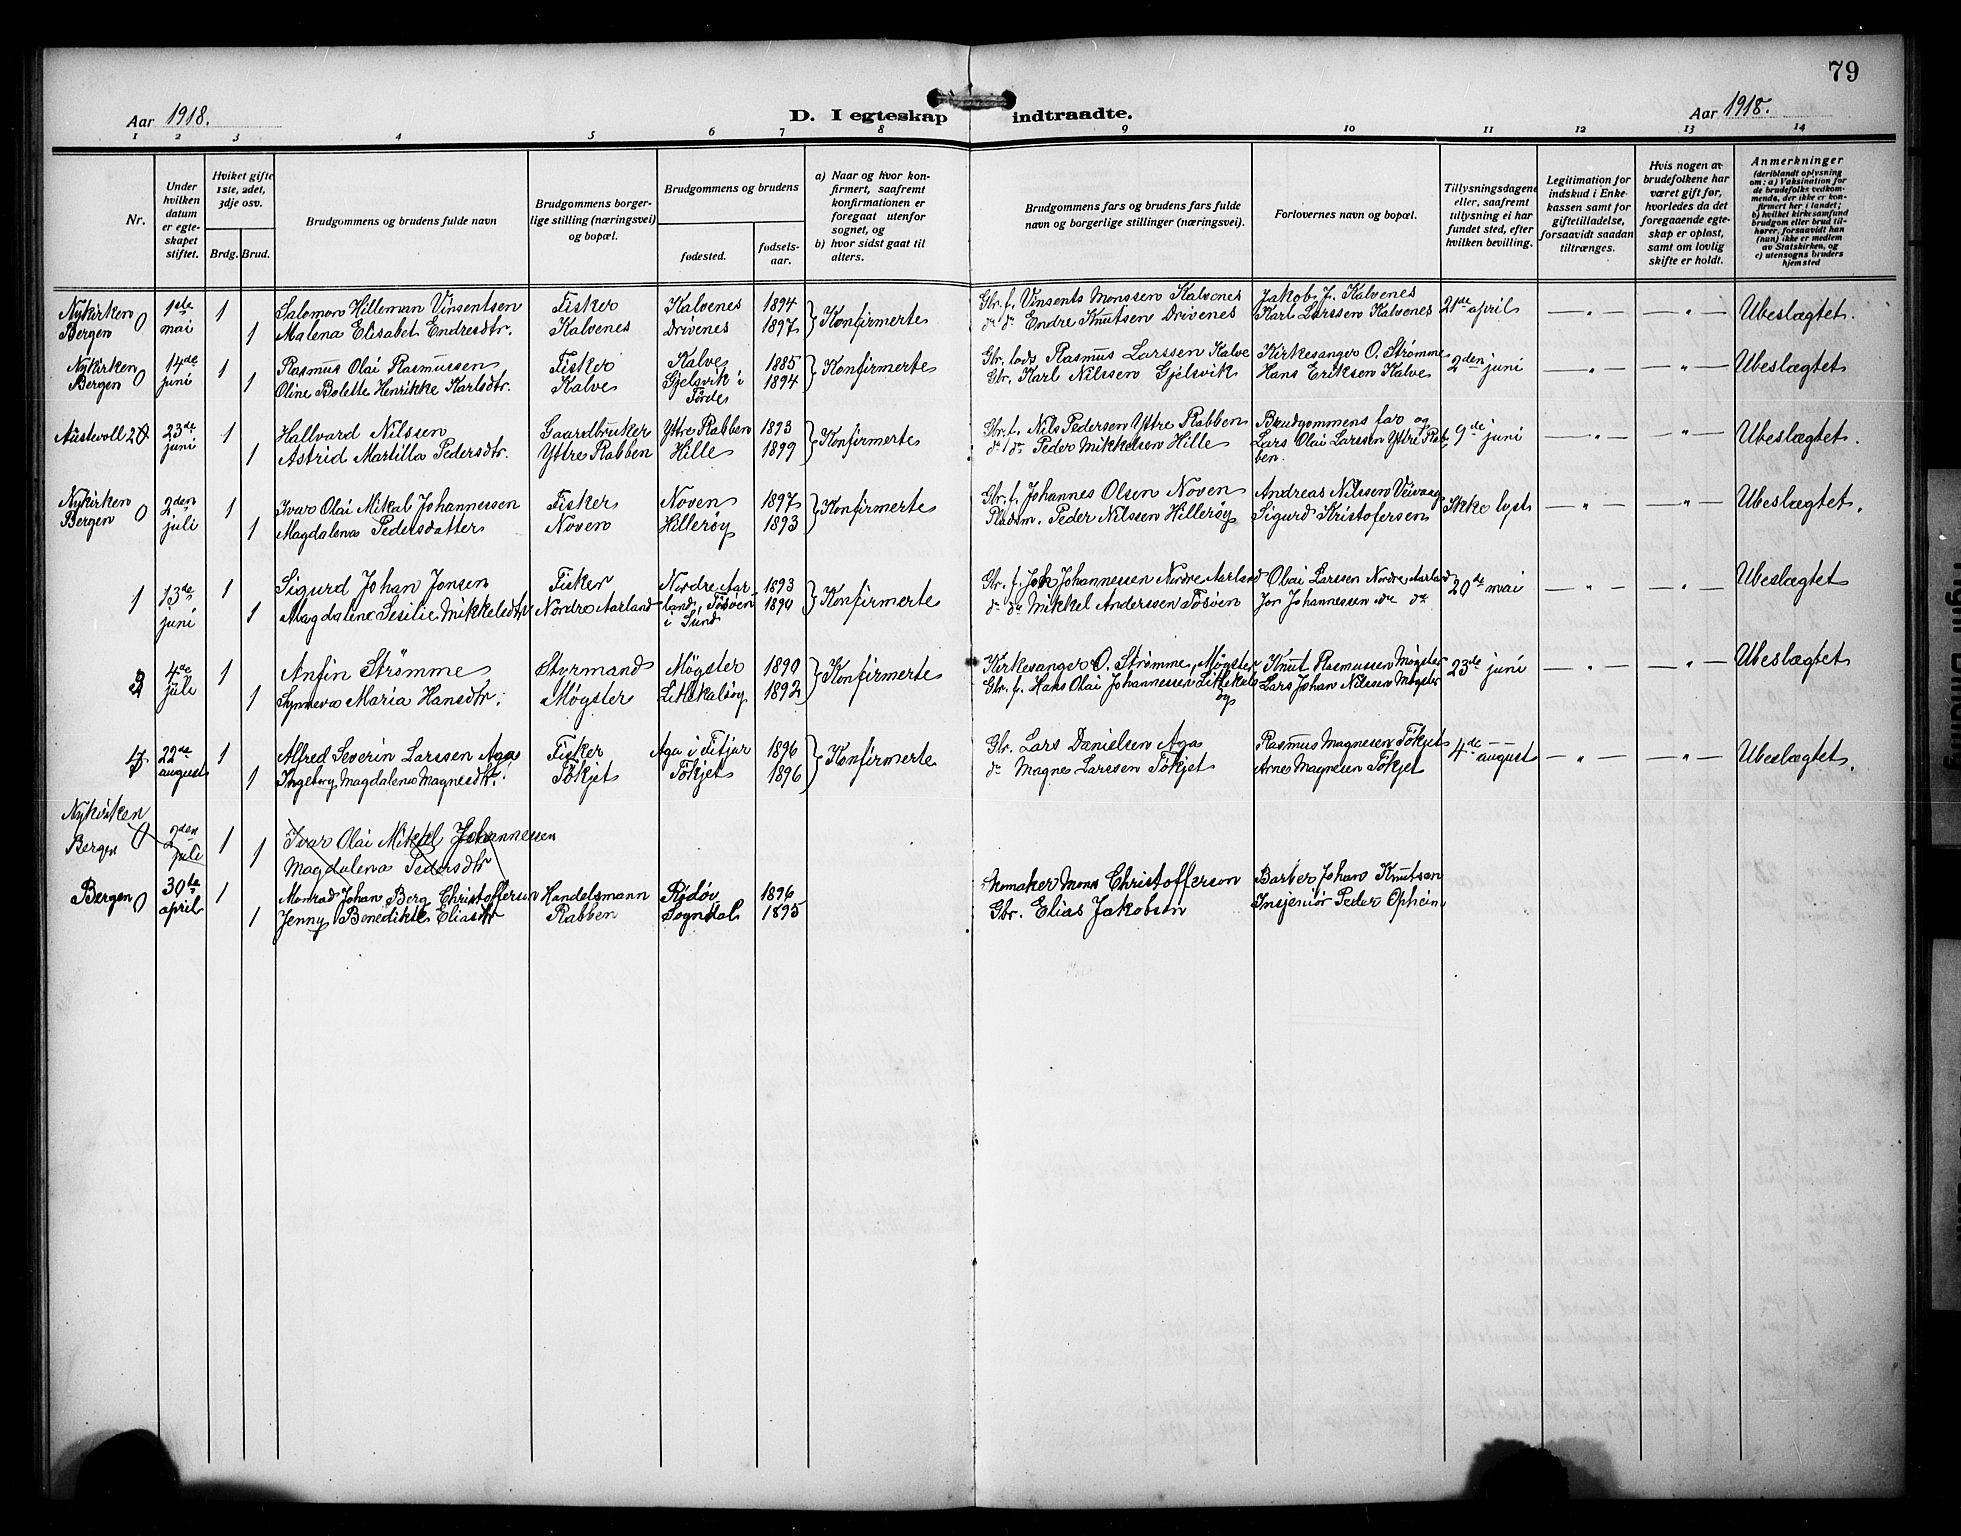 79
Aar 1918.
D. I egteskap indtraadte.
Aar 1918.
1 2 3 4 5 6 7 8 9 10 11 12 13 14
Nr.
Under hvilken datum er egteskapet stiftet.
Hviket gifte 1ste, 2det, 3dje osv.
Brdg. Brud.
Brudgommens og brudens fulde navn
Brudgommens borgerlige stilling (næringsvei) og bopæl.
Brudgommens og brudens
fødested.
fødselsaar.
a) Naar og hvor konfirmert, saafremt konfirmationen er foregaat utenfor sognet, og
b) hvor sidst gaat til alters.
Brudgommens fars og brudens fars fulde navn og borgerlige stillinger (næringsvei).
Forlovernes navn og bopæl.
Tillysningsdagene eller, saafremt tillysning ei har fundet sted, efter hvilken bevilling.
Legitimation for indskud i Enkekassen samt for giftetilladelse, forsaavidt saadan tiltrænges.
Hvis nogen av brudefolkene har været gift før, hvorledes da det foregaaende egteskap er opløst, samt om lovlig skifte er holdt.
Anmerkninger (deriblandt oplysning om: a) Vaksination for de brudefolks vedkommende, der ikke er konfirmert her i landet; b) hvilket kirkesamfund brudgom eller brud tilhører, forsaavidt han (hun) ikke er medlem av Statskirken, og c) utensogns bruders hjemsted
Nykirken 0 1ste 1 Salomon Hilleman Vinsentsen Fisker Kalvenes 1894 } Konfirmerte Gbr. f. Vinsents Monssen Kalvenes Jakob J. Kalvenes 21de april — " — — " — Ubeslægtet.
Bergen mai 1 Malena Elisabet Endresdtr. Kalvenes Drivenes 1897 do do Endre Knutsen Drivenes Karl Larssen Kalvenes
Nykirken 14de 1 Rasmus Olai Rasmussen Fisker Kalve 1885 } Konfirmerte Gbr. lods Rasmus Larssen Kalve Kirkesanger O. Strømme 2den juni — " — — " — Ubeslægtet
Bergen 0 juni 1 Oline Bolette Henrikke Karlsdtr. Kalve Gjelsvik i Førde 1894 Gbr. Karl Nilssen Gjelsvik Hans Eriksen Kalve
Austevoll 23de 1 Hallvard Nilssen Gaardbruker Yttre Rabben 1893 } Konfirmerte Gbr. f. Nils Pedersen Yttre Rabben Brudgommens far og 9de juni — " — — " — Ubeslægtet.
juni 1 Astrid Martilla Pedersdtr. Yttre Rabben Hille 1899 do do Peder Mikkelsen Hille Lars Olai Larssen Yttre Rabben.
Nykirken 0 2den 1 Ivar Olai Mikal Johannessen Fisker Noven 1897 } Konfirmerte Gbr. f. Johannes Olsen Noven Andreas Nilssen Ikke lyst — " — — " — Ubeslægtet.
Bergen juli 1 Magdalena Pedersdatter Noven Hillerøy 1893 Pladsm. Peder Nilssen Hillerøy Sigurd Kristofersen
1 13de 1 Sigurd Johan Jonsen Fisker Nordre Aarland, 1893 } Konfirmerte Gbr. f. Johannessen Nordre Aarland Olai Larssen Nordre Aarland 20de mai — " — — " — Ubeslægtet
juni 1 Magdalena Sesilie Mikkelsdtr Nordre Aarland Tøsøen i Sund 1894 do do Mikkel Anderssen Tøsøen Jon Johannessen do do
4de 1 Anfin Strømme Styrmand Møgster 1890 } Konfirmerte Kirkesanger O. Strømme, Møgster Knut Rasmussen Møgster 23de juni — " — — " — Ubeslægtet
juli 1 Synneva Maria Hansdtr. Møgster Litlekalsøy 1892 Gbr. f. Hans Olai Johannessen Litlekalsøy Lars Johan Nilssen Møgster
22de 1 Alfred Severin Larssen Aga Fisker Aga i Fitjar 1896 } Konfirmerte Gbr. Lars Danielsen Aga Rasmus Magnesen Tökjet 4de august — " — — " — Ubeslægtet.
august 1 Ingeborg Magdalena Magnesdtr. Tökjet Tökjet 1896 do Magnes Larssen Tökjet Arnes Magnesen Tökjet
Nykirken 2den 1 Ivar Olai Mikkel Johannessen
Bergen 0 juli 1 Magdalena Pedersdtr
Bergen 0 30te 1 Monrad Johan Berg Christoffersen Handelsmann Rødøi 1896 Mons Christofferson Barber Johan Knutson
april 1 Jenny Benedikte Eliasdtr Rabben Sogndal 1895 Gbr. Elias Jakobson Insjeniør Peder Opheim